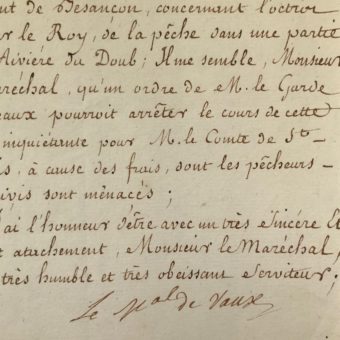 nt de Besançon, concernant l'octroi
ar le Roy, de la pêche dans une partie
Rivière du Doub; Il me semble, Monsieur
aréchal, qu'un ordre de M. le Garde
eaux pourroit arrêter le cours de cette
inquiétante pour M. le Comte de St-
is, à cause des frais, dont les pêcheurs-
ivis sont menacés;
'ai l'honneur d'être avec un très sincère Et
t attachement, Monsieur le Maréchal,
très humble et très obeissant serviteur;
Le Mal de Vaux